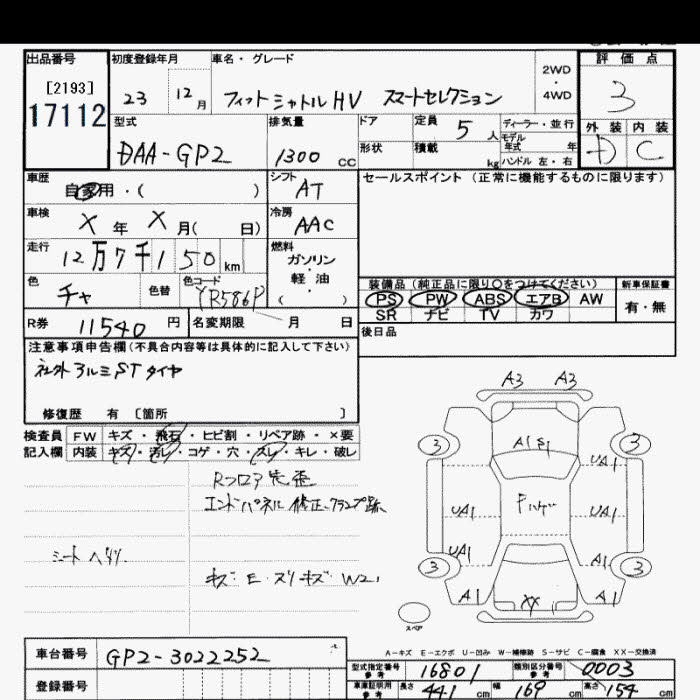 出品番号 初度登録年月 車名・グレード 2WD ・ 4WD 評価点
[2193] 17112 23 12月 フィットシャトルHV スマートセレクション 3
型式 排気量 ドア 定員 5人 ディーラー・並行 外装 内装
DAA-GP2 1300cc 形状 積載 kg モデル年式 年 D C
ハンドル 左・右
車歴 自家用・( ) シフト AT セールスポイント(正常に機能するものに限ります)
車検 X年X月( 日) 冷房 AAC
走行 12万7千150km 燃料 ガソリン・軽油 ( )
色 チャ 色替 色コード YR586P 装備品(純正品に限り○をつけてください) 新車保証書
PS PW ABS エアB AW 有・無
SR ナビ TV カワ
R券 11540円 名変期限 月 日 後日品
注意事項申告欄(不具合内容等は具体的に記入して下さい)
社外アルミSTタイヤ
修復歴 有 〔箇所 〕
検査員 FW キズ・飛石・ヒビ割・リペア跡・×要
記入欄 内装 キズ・汚レ・コゲ・穴・スレ・キレ・破レ
Rフロア先歪
エンドパネル修正、クランプ跡
シートヘタリ
キズ・E・スリキズ W2
A3 A3
3 A1S1 3
UA1
UA1 Fハゲ UA1
UA1 A1
3 3
A1 XX A1
スペア
A-キズ E-エクボ U-凹み W-補修跡 S-サビ C-腐食 XX-交換済
車台番号 GP2-3022252
型式指定番号 参考 16801 類別区分番号 参考 0003
登録番号 車庫証明用 参考 長さ 441cm 幅 169cm 高さ 154cm